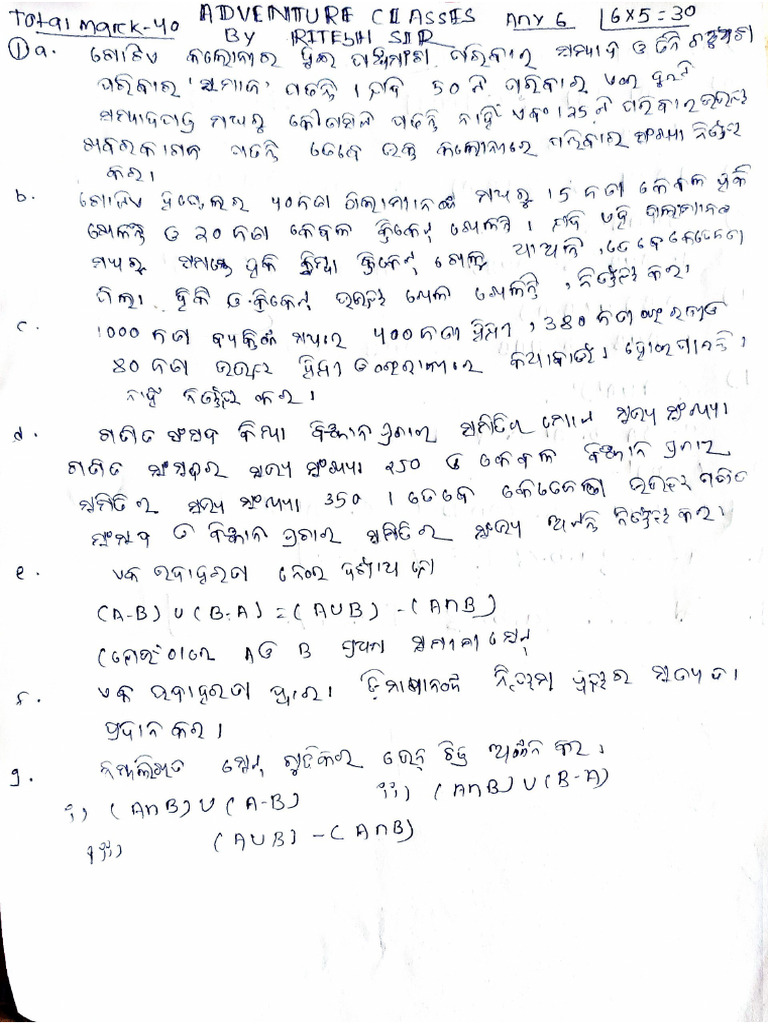 Total Mark-40 ADVENTURE CLASSES Any 6 6x5=30
BY RITESH SIR
① a. ଗୋଟିଏ କଲୋନୀର ଦୁଇ ପଞ୍ଚମାଂଶ ପରିବାର ସମ୍ବାଦ ଓ ତିନି ଚତୁର୍ଥାଂଶ
ପରିବାର 'ସମାଜ' ପଢନ୍ତି । ଯଦି 50 ଟି ପରିବାର ଏଇ ଦୁଇଟି
ସମ୍ବାଦପତ୍ର ମଧ୍ୟରୁ କୌଣସିଟି ପଢନ୍ତି ନାହିଁ ଏବଂ 125 ଟି ପରିବାର ଉଭୟ
ଖବରକାଗଜ ପଢନ୍ତି ତେବେ ଉକ୍ତ କଲୋନୀରେ ପରିବାର ସଂଖ୍ୟା ନିର୍ଣ୍ଣୟ
କର।
b. ଗୋଟିଏ ହଷ୍ଟେଲର ୪0ଜଣ ପିଲାମାନଙ୍କ ମଧ୍ୟରୁ 15 ଜଣ କେବଳ ହକି
ଖେଳନ୍ତି ଓ ୨0 ଜଣ କେବଳ କ୍ରିକେଟ୍ ଖେଳନ୍ତି । ଯଦି ଏହି ପିଲାମାନଙ୍କ
ମଧ୍ୟରୁ ସମସ୍ତେ ହକି କିମ୍ବା କ୍ରିକେଟ୍ ଖେଳୁ ଥାଆନ୍ତି, ତେବେ କେତେଜଣ
ପିଲା ହକି ଓ କ୍ରିକେଟ୍ ଉଭୟ ଖେଳ ଖେଳନ୍ତି, ନିର୍ଣ୍ଣୟ କର।
c. 1000 ଜଣ ବ୍ୟକ୍ତିଙ୍କ ମଧ୍ୟରେ ୪00 ଜଣ ହିନ୍ଦୀ, 380 ଜଣ ଇଂରାଜୀ ଓ
80 ଜଣ ଉଭୟ ହିନ୍ଦୀ ଓ ଇଂରାଜୀରେ କଥାବାର୍ତ୍ତା ହୋଇପାରନ୍ତି ।
ନାହିଁ ନିର୍ଣ୍ଣୟ କର।
d. ଗଣିତ ସଂସଦ କିମ୍ବା ବିଜ୍ଞାନ ପ୍ରଚାର ସମିତିର ମୋଟ ସଭ୍ୟ ସଂଖ୍ୟା
ଗଣିତ ସଂସଦର ସଭ୍ୟ ସଂଖ୍ୟା ୨50 ଓ କେବଳ ବିଜ୍ଞାନ ପ୍ରଚାର
ସମିତିର ସଭ୍ୟ ସଂଖ୍ୟା 350 । ତେବେ କେତେଜଣ ଉଭୟ ଗଣିତ
ସଂସଦ ଓ ବିଜ୍ଞାନ ପ୍ରଚାର ସମିତିର ସଭ୍ୟ ଅଟନ୍ତି ନିର୍ଣ୍ଣୟ କର।
e. ଏକ ଉଦାହରଣ ନେଇ ଦର୍ଶାଅ ଯେ
(A-B) ∪ (B-A) = (A∪B) - (A∩B)
(ଯେଉଁଠାରେ A ଓ B ସସୀମ ସେଟ୍
f. ଏକ ଉଦାହରଣ ଦ୍ୱାରା ଡିମରଗାନଙ୍କ ନିୟମ ଦ୍ୱୟର ସତ୍ୟତା
ପ୍ରଦାନ କର ।
g. ନିମ୍ନଲିଖିତ ସେଟ୍ ଗୁଡିକର ଭେନ୍ ଚିତ୍ର ଅଙ୍କନ କର ।
i) (A∩B) ∪ (A-B) ii) (A∩B) ∪ (B-A)
iii) (A∪B) - (A∩B)